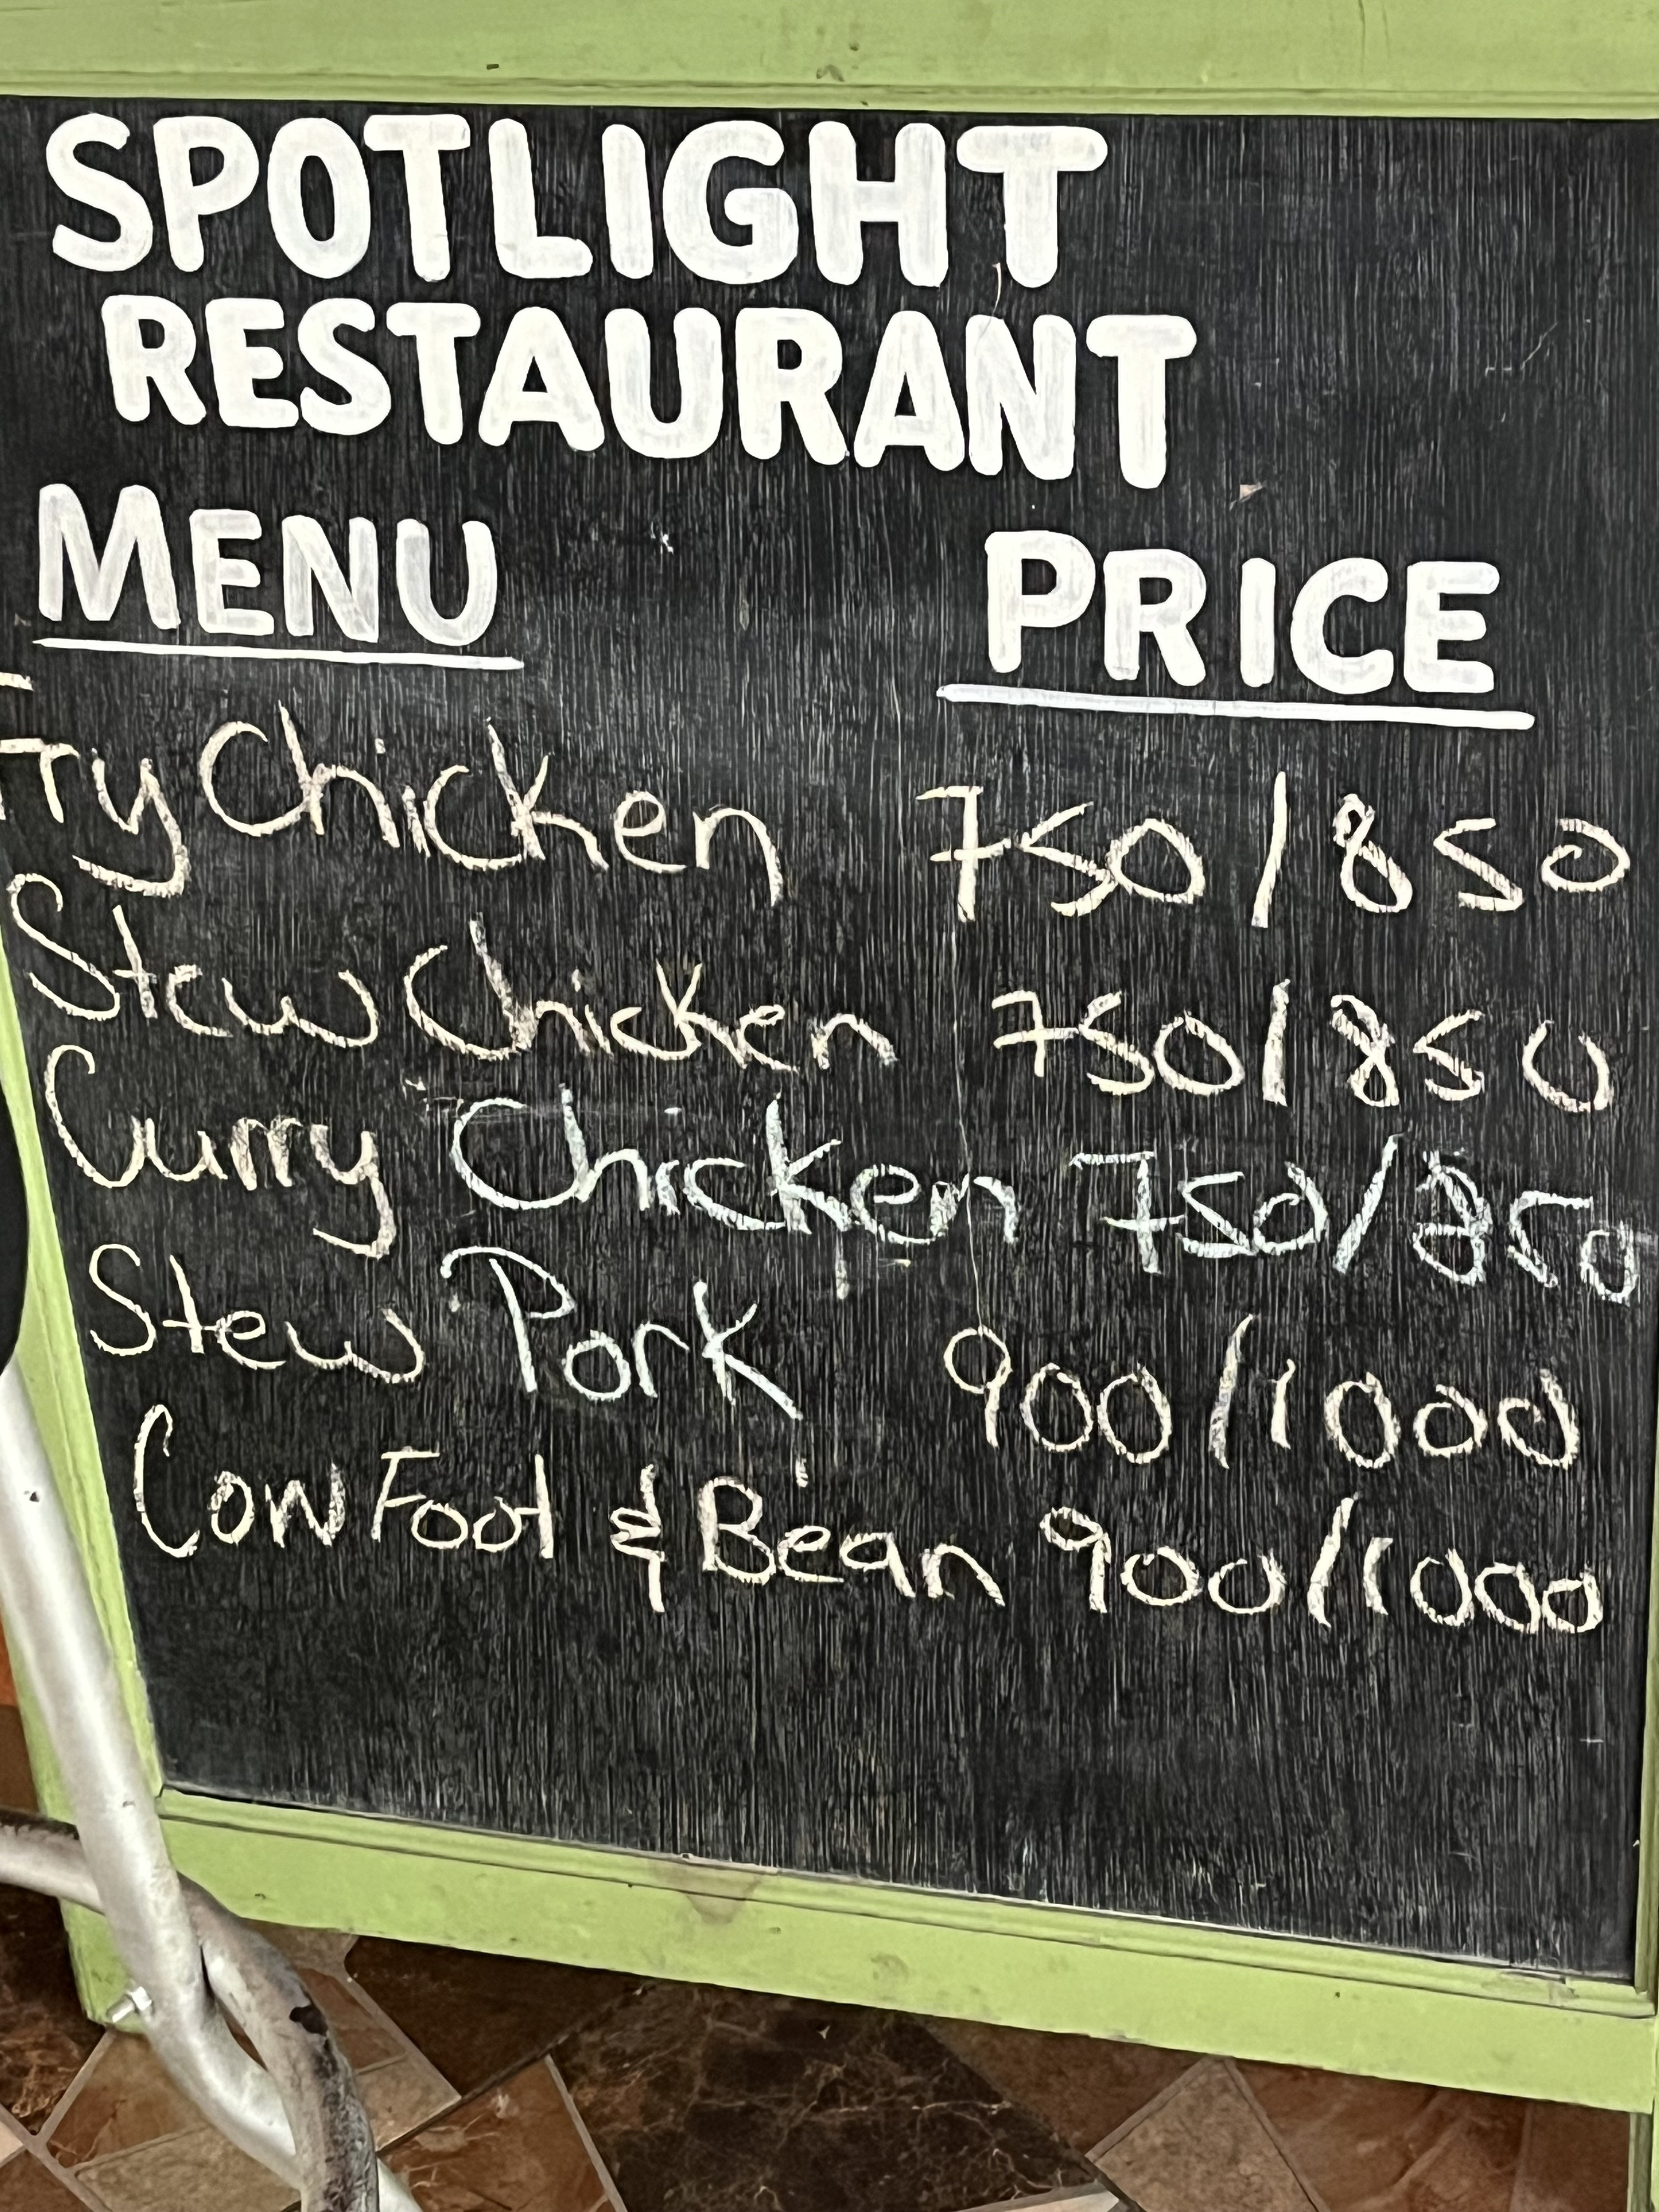 SPOTLIGHT
RESTAURANT
MENU PRICE
Fry Chicken 750/850
Stew Chicken 750/850
Curry Chicken 750/850
Stew Pork 900/1000
Cow Foot & Bean 900/1000